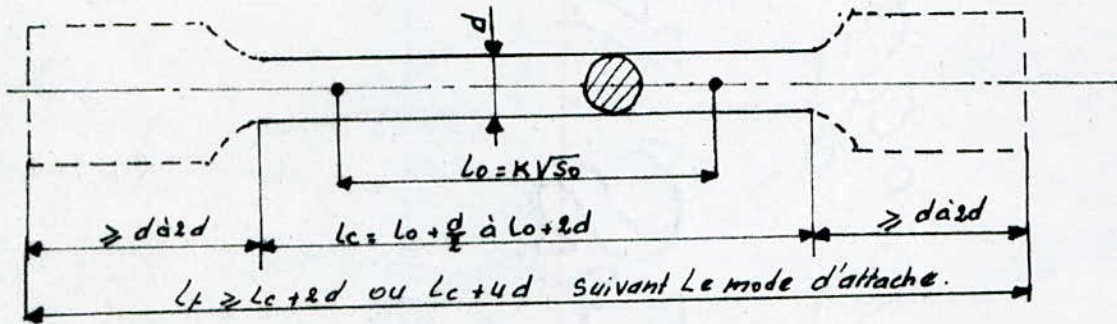 d
lo = K√So
≥ d à 2d
lc = lo + d/2 à lo + 2d
≥ d à 2d
Lt ≥ Lc + 2d ou Lc + 4d suivant Le mode d'attache.